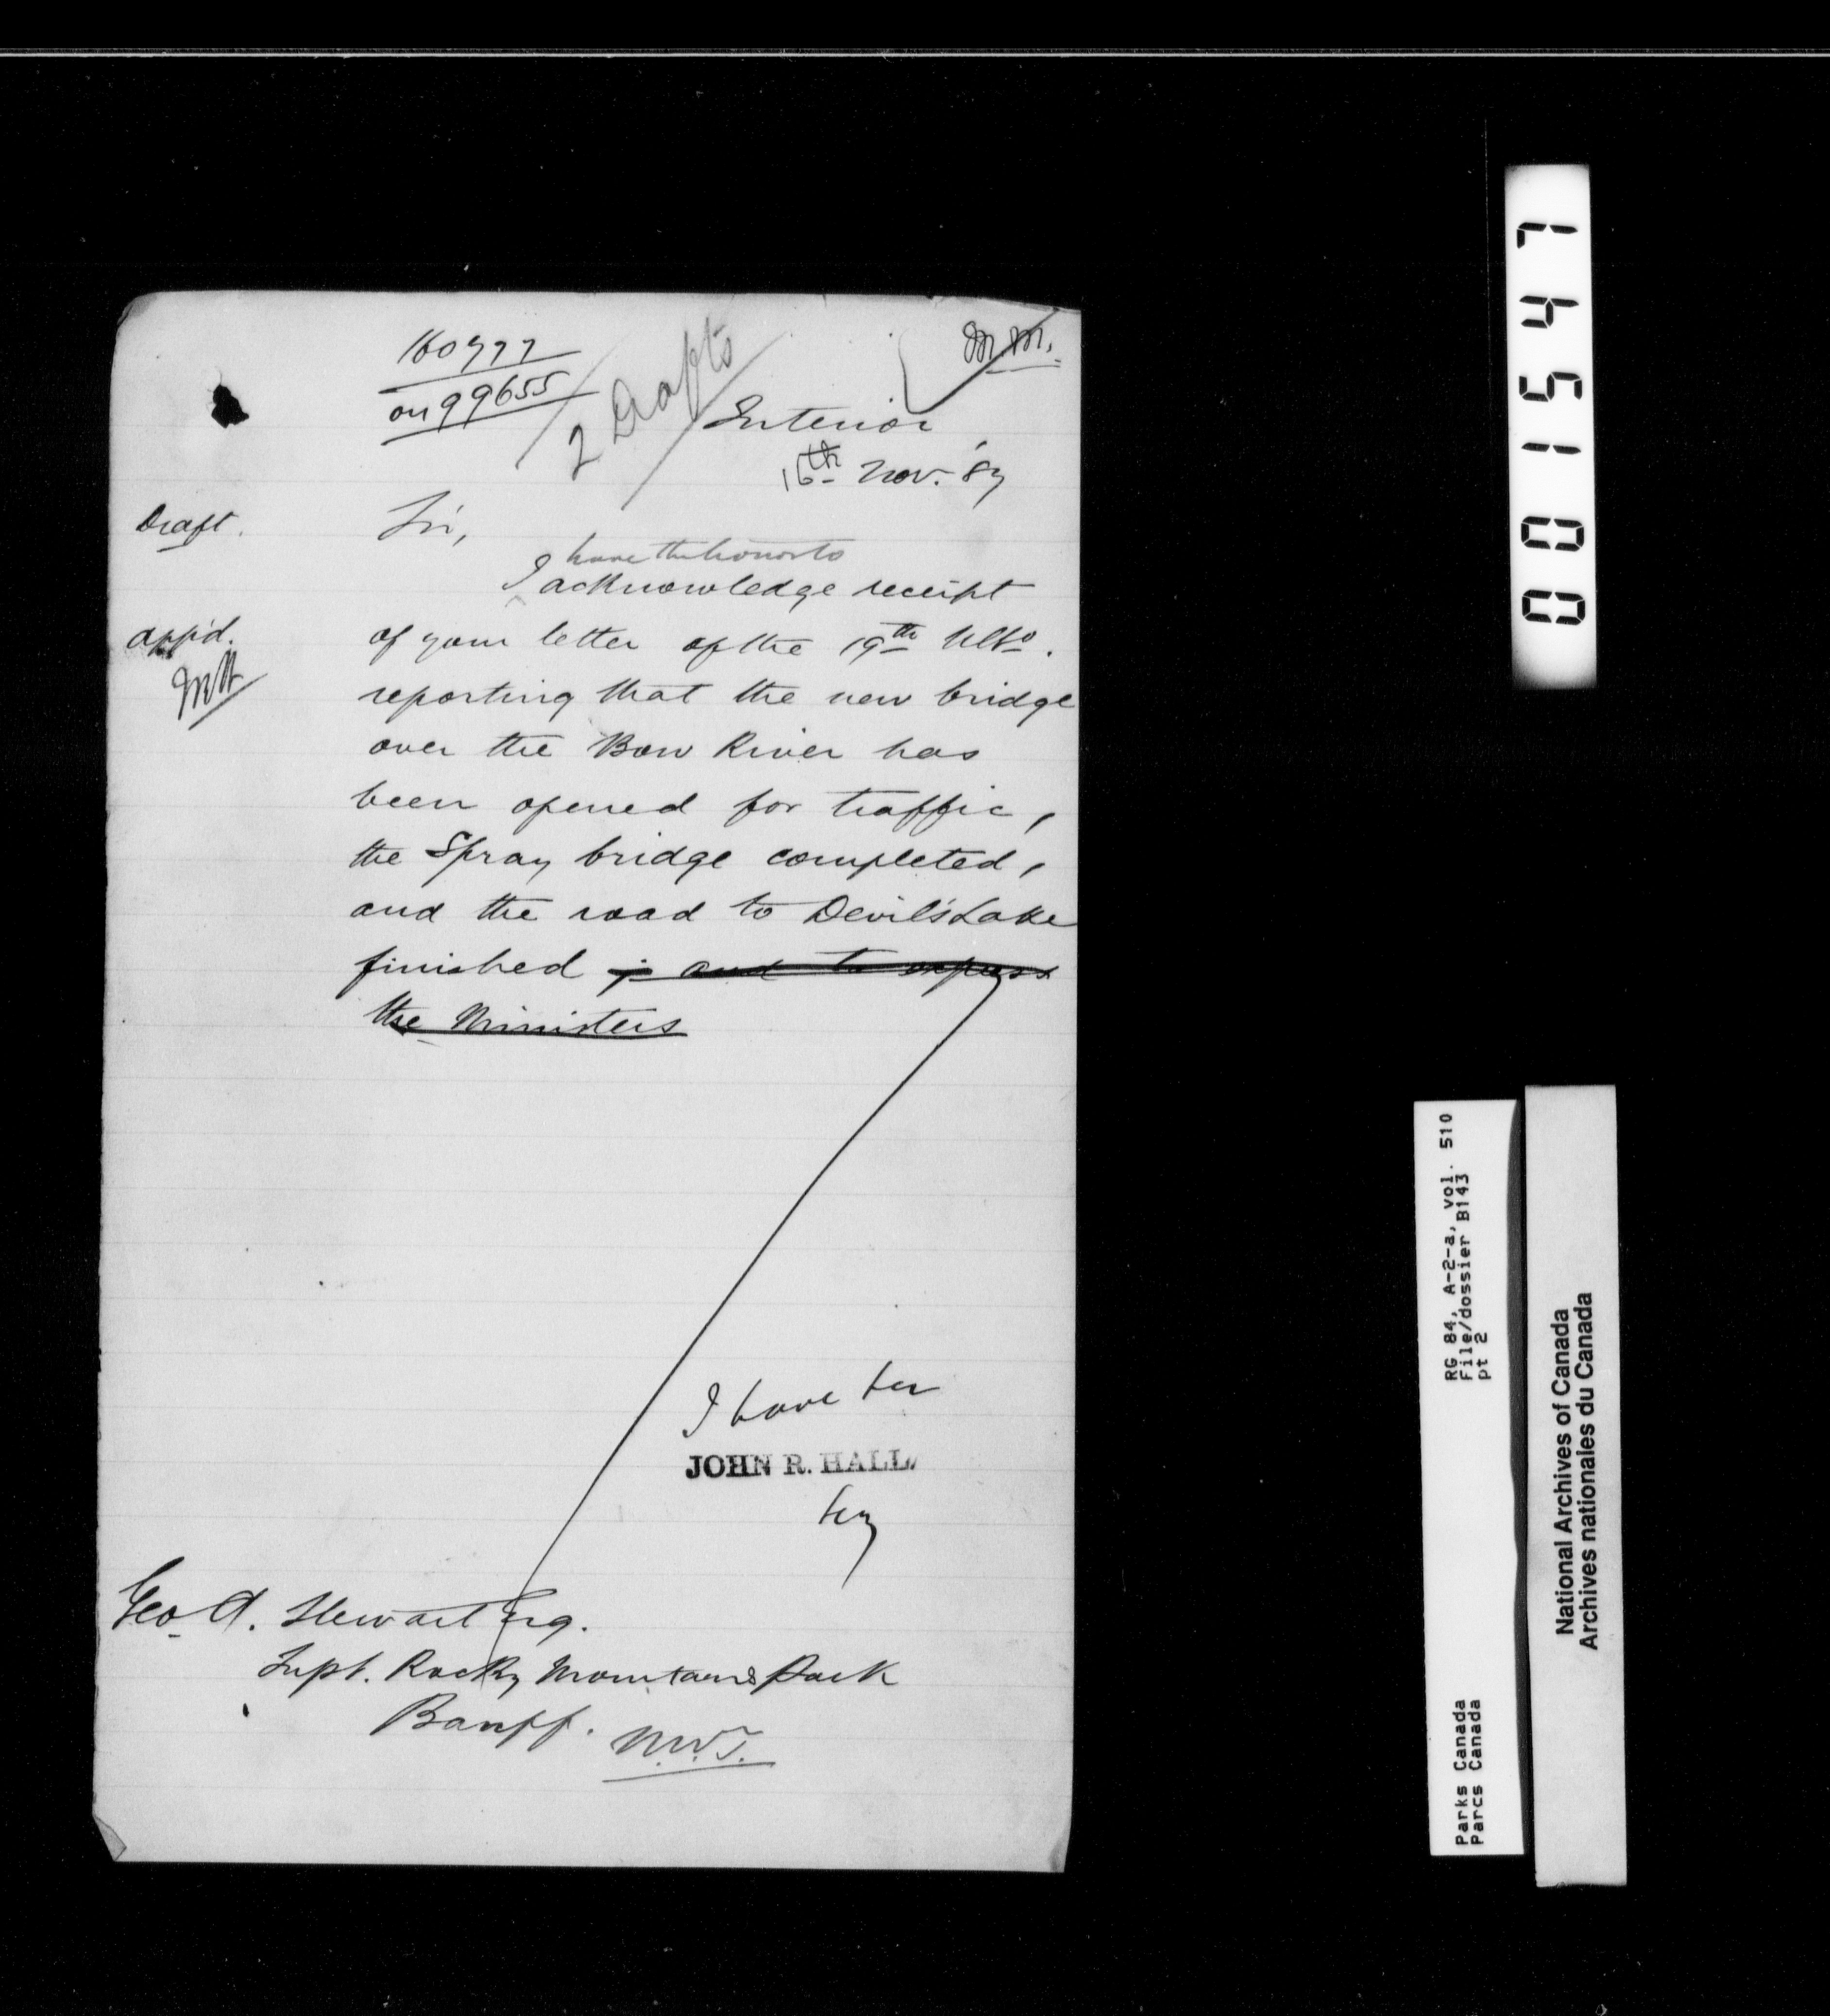 160777
on 99655
2 Drafts
M.M.
Interior
16th Nov. '87
Draft.
Sir,
have the honor to
I acknowledge receipt
app'd.
of your letter of the 19th Ulto.
reporting that the new bridge
over the Bow River has
been opened for traffic,
the Spray bridge completed,
and the road to Devil's Lake
finished ; and to express
the Ministers
I have
JOHN R. HALL
Secy
Geo A. Stewart Esq.
Supt. Rocky Mountains Park
Banff. N.W.T.
001547
RG 84, A-2-a, vol. 510
File/dossier B143
pt 2
Parks Canada
Parcs Canada
National Archives of Canada
Archives nationales du Canada